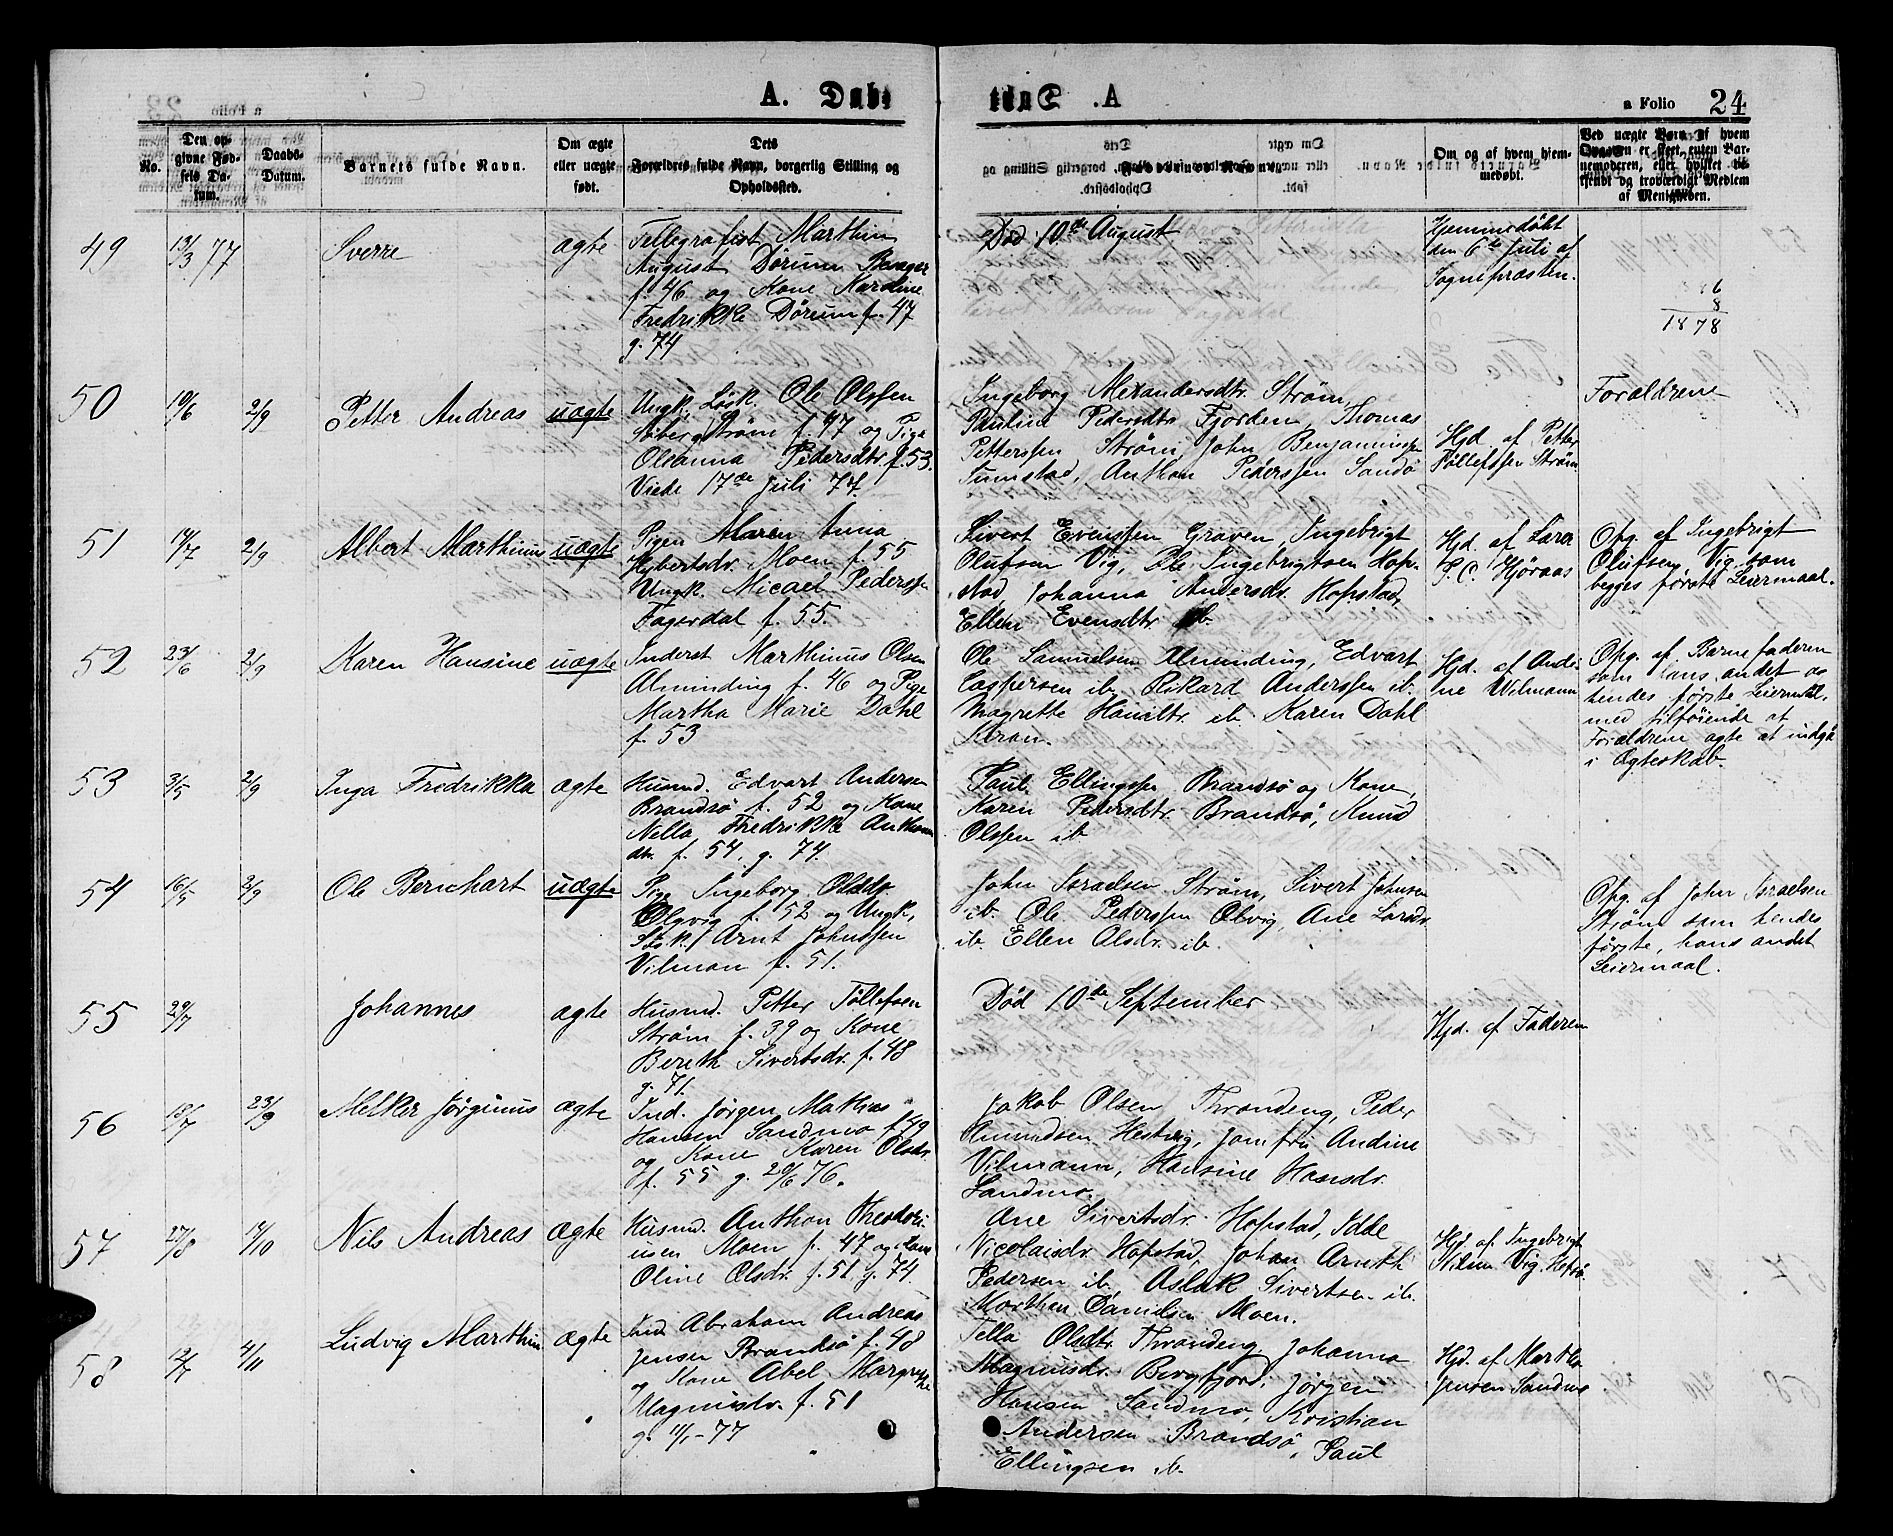 A. Døbt
A. Døbt
a Folio 24
No.
Den opgivne Fødsels Datum.
Daabs-Datum.
Barnets fulde Navn.
Om ægte eller uægte født.
Dets Forældres fulde Navn, borgerlig Stilling og Opholdssted.
Faddernes Navne.
Om og af hvem hjemmedøbt.
Ved uægte Børn af hvem Opgaven er skeet, enten Barnemoderen, eller hvilket bekjendt og troværdigt Medlem af Menigheden.
49 13/3 77 Sverre ægte
Tellegrafist Marthin
August Dørum
f. 46 og Kone Nardine
Fredrikke Dørum f. 47
g. 74
Død 10de August
Hjemmedøbt
den 6te Juli af
Sognepræsten.
6
8
1878
50 10/6 2/9 Petter Andreas uægte
Ungk. Løsk. Ole Olssen
Strøm f. 47 og Pige
Oleanna Pedersdtr. f. 53.
Viede 17de Juli 77.
Ingeborg Alexandersdtr. Strøm,
Pauline Pedersdtr. Fjorden, Thomas
Petterssen Strøm, John Benjaminssen
Sumstad, Anthon Pederssen Sandø
Hjd. af Petter
Tøllefssen Strøm
Forældrene
51 14/7 2/9 Albert Marthinus uægte
Pigen Maren Anna
Moen f. 55
Ungk. Micael Pederss.
Fagerdal f. 55.
Sivert Evenssen Graven, Ingebrigt
Olufsen Vig, Ole Ingebrigtsen Hop-
stad Johanna Andersdr. Hopstad,
Ellen Evensdtr. ib.
Hjd. af Lærer
P. C. Hjøraas
Opg. af Ingebrigt
Olufsen Vig som
begges første Leiermaal.
52 23/6 2/9 Karen Hansine uægte
Inderst Marthinus Olsen
Alminding f. 46 og Pige
Martha Marie Dahl
f. 53
Ole Samuelsen Alminding, Edvart
Caspersen ib. Rikard Anderssen ib.
Magrette Hansdtr. ib. Karen Dahl
Kiran.
Hjd. af Andi-
ne Wilmann
Opg. af Barnefaderen
som hans andet og
hendes første Leiermaal,
med tilføiende at
Forældrene agte at indgå
i Ægteskab.
53 3/5 2/9 Inga Fredrikka ægte
Husmd. Edvart Andersen
Brandsø f. 52 og Kone
Nella Fredrikke Anthons
dtr. f. 54. g. 74.
Paul Ellingssen Brandsø og Kone,
Karen Pedersdtr. Brandsø, Knud
Olssen ib.
54 16/5 2/9 Ole Berichart uægte
Pige Ingeborg Olsdr.
Olsvig f. 52 og Ungk.
Arnt Johnssen
Vilman f. 51.
John Israelsen Strøm, Sivert Johnsen
ib. Ole Pederssen Olsvig, Ane Larsdr.
ib. Ellen Olsdr. ib.
Opg. af John Israelsen
Strøm som hendes
første, hans andet
Leiermaal.
55 22/7 Johannes ægte
Husmd. Petter Tøllefsen
Strøm f. 39 og Kone
Bereth Sivertsdr. f. 48
g. 71.
Død 10de September
Hjd. af Faderen
56 18/7 23/9 Melker Jørginus ægte
Ind. Jørgen Mathias
Hansen Sandmo f. 49
og Kone Karen Olsdr.
f. 55 g. 29/6 76.
Jakob Olsen Thranding, Peder
Amundsen Hestvig, Jomfru Andine
Vilmann, Hansine Hansdr.
Sandmo.
57 27/8 14/10 Nils Andreas ægte
Husmd. Anthon Theodori-
usen Moen f. 47 og Kone
Oline Olsdr. f. 51 g. 74
Ane Sivertsdr. Hopstad, Idde
Nicolaisdr. Hofstad, Johan Arnth
Pedersen ib. Aslak Sivertsen ib.
Morthen Danielsen Moen.
Hjd. af Ingebrigt
Vig.
58 12/7 4/11 Ludvig Marthin ægte
Ind. Abraham Andreas
Jensen Brandsø f. 48
og Kone Abel Margrethe
Magnusdr. f. 51
g. 4/1-77
Tella Olsdtr. Thranding, Johanna
Magnusdr. Bergfjord, Jørgen
Hansen Sandmo, Kristian
Andersen Brandsø, Paul
Ellingsen ib.
Hjd. af Martha
Jensen Sandmo